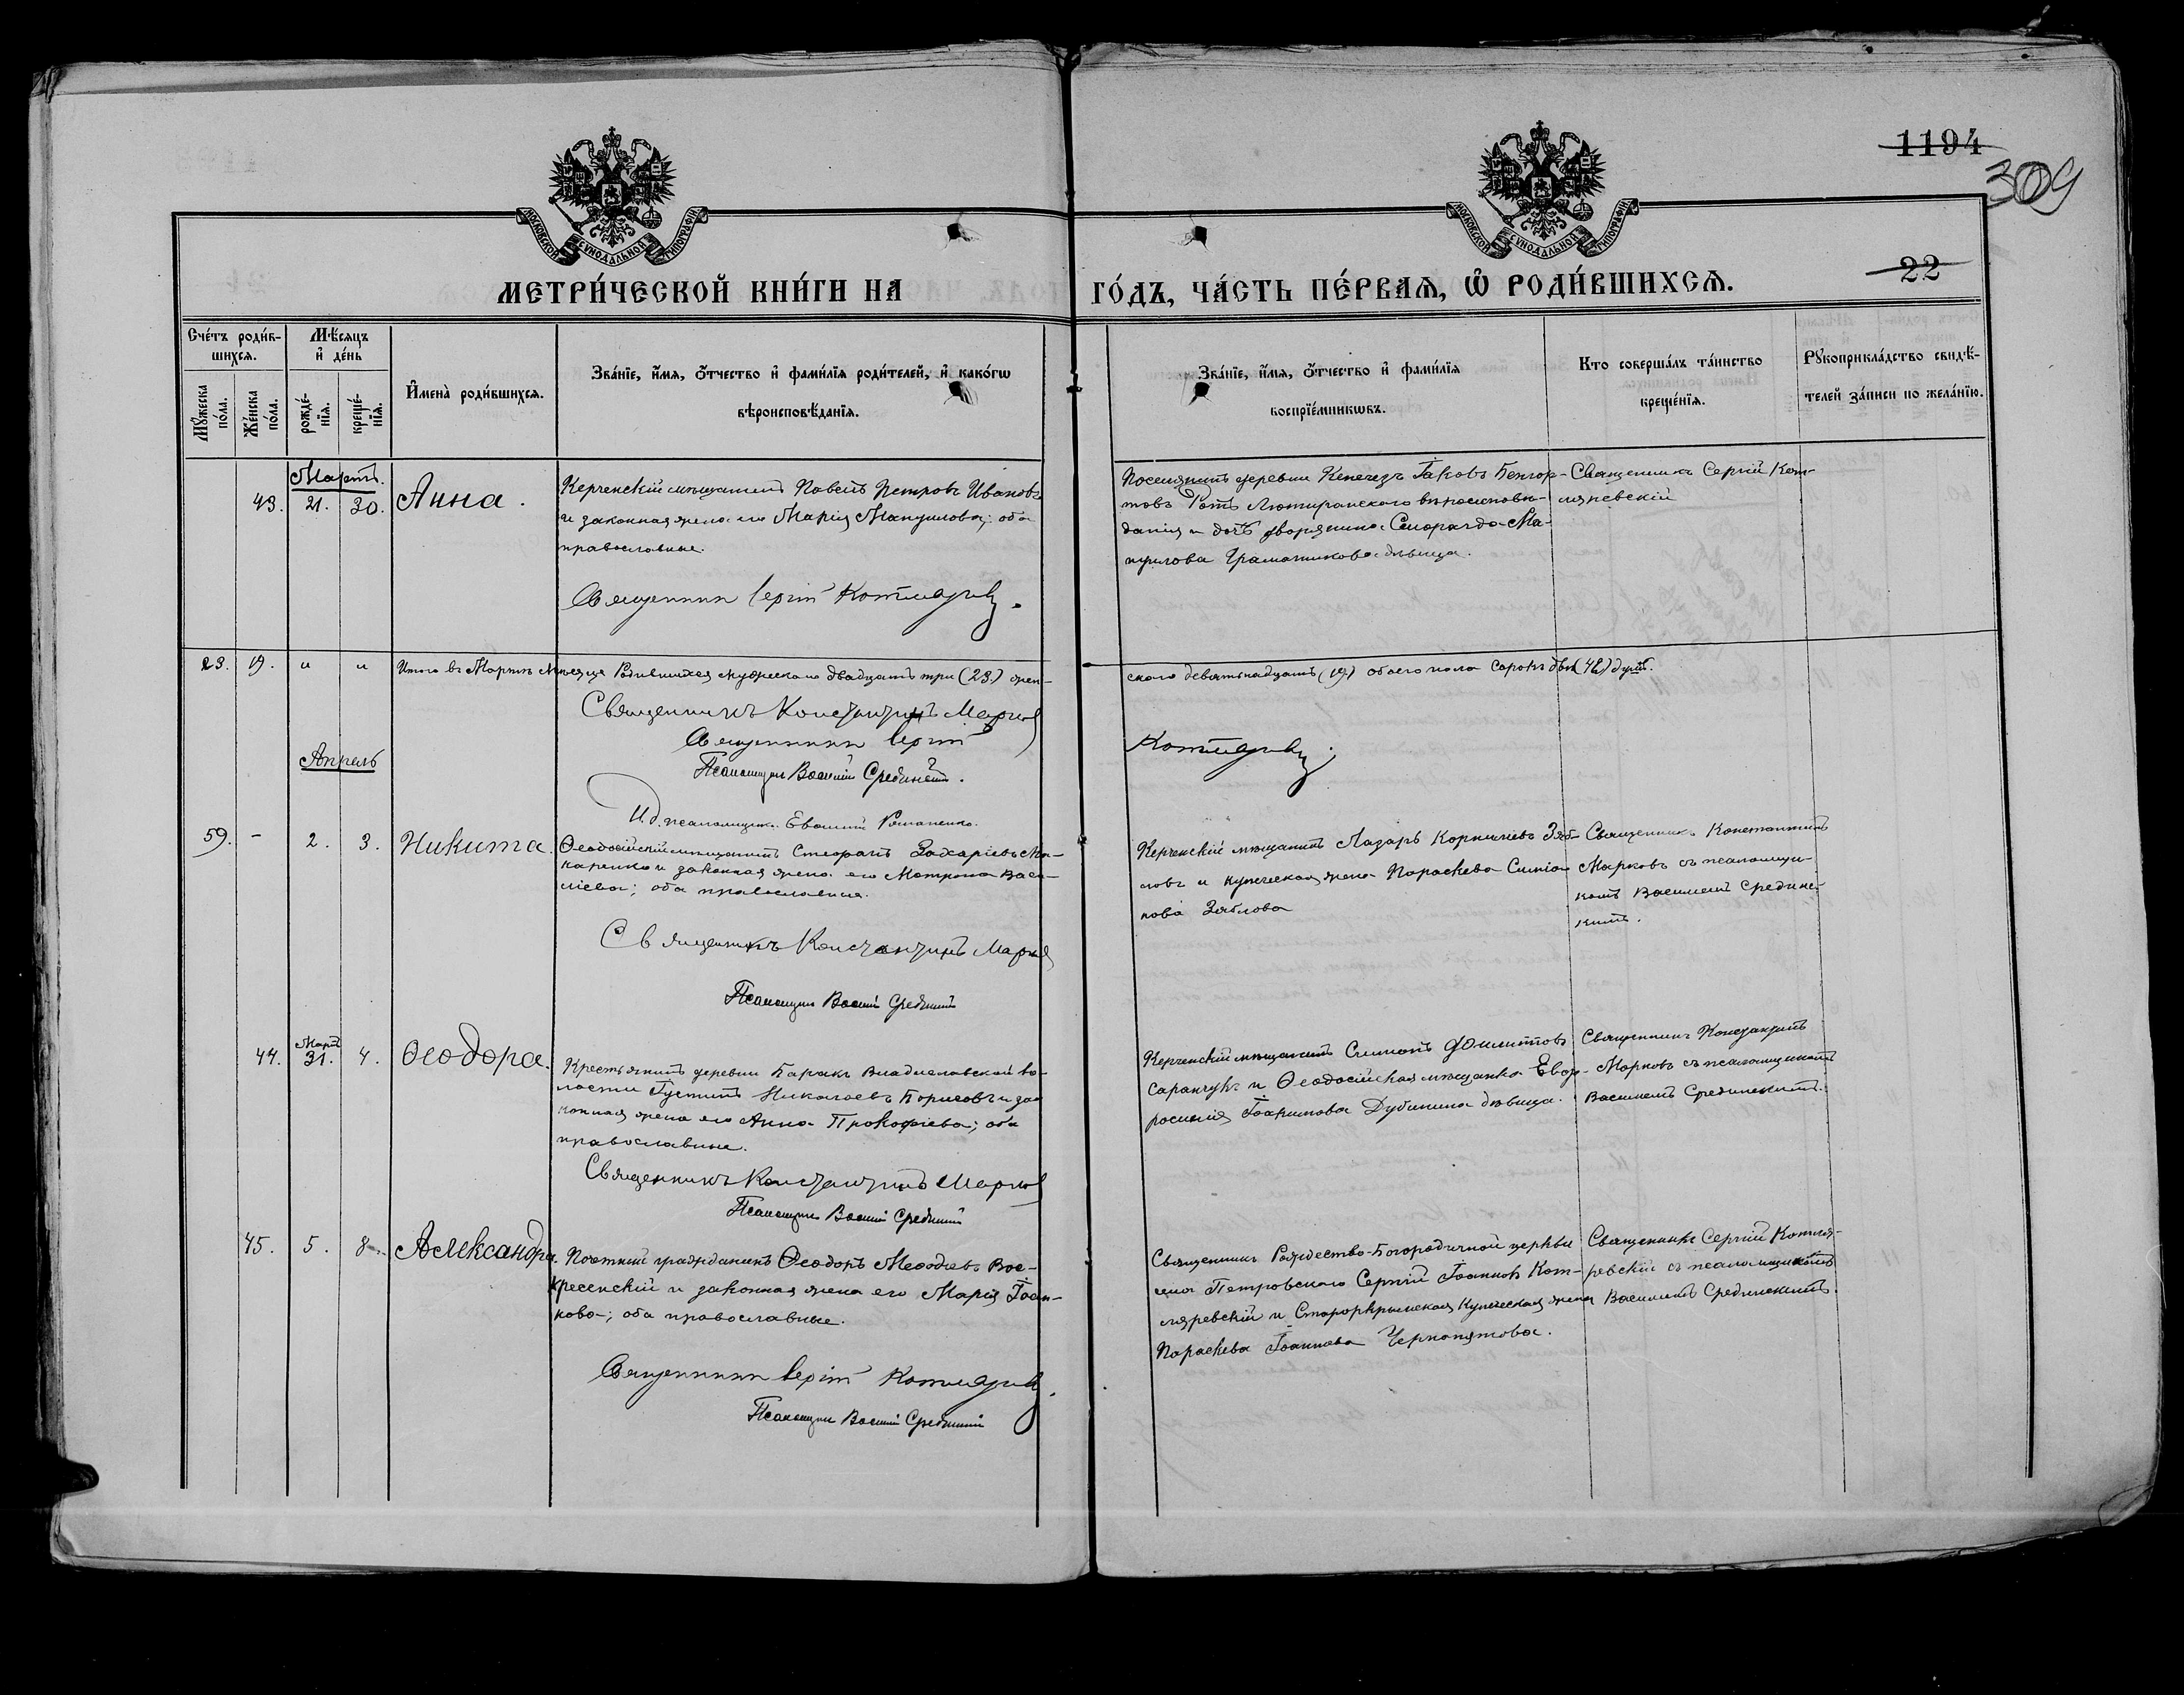 1194
309
МОСКОВСКОЙ СѴНОДАЛЬНОЙ ТИПОГРАФІИ
МОСКОВСКОЙ СѴНОДАЛЬНОЙ ТИПОГРАФІИ
МЕТРИ́ЧЕСКОЙ КНИ́ГИ НА ГО́ДЪ, ЧА́СТЬ ПЕ́РВАЯ, Ѽ РОДИ́ВШИХСЯ.
22
Сче́тъ роди́в-
шихся.
Мѣ́сяцъ
и҆ де́нь
Мꙋ́жеска
по́ла.
Же́нска
по́ла.
рожде́-
нїя.
креще́-
нїя.
И҆мена̀ роди́вшихся.
Зва́нїе, и҆́мя, ѻ҆́тчество и҆ фами́лїя роди́телей, и҆ како́гѡ
вѣроисповѣ́данїя.
Зва́нїе, и҆́мя, ѻ҆́тчество и҆ фами́лїя
воспрїе́мникѡвъ.
Кто соверша́лъ та́инство
креще́нїя.
Рꙋкоприкла́дство свидѣ́-
телей за́писи по жела́нїю.
Мартъ.
43. 21. 30. Анна.
Керченскій мѣщанинъ Павелъ Петровъ Ивановъ
и законная жена его Марія Мануилова; оба
православные.
Священникъ Сергій Котляревскій.
Поселянинъ деревни Кенегезъ Іаковъ
товъ Ротъ Лютеранскаго вѣроисповѣ-
данія и дочь дворянина Смарагда Ма-
нуилова Граматикова дѣвица.
Священникъ Сергій Кот-
ляревскій
23. 19. " " Итого въ Мартѣ мѣсяцѣ родившихся мужескаго двадцать три (23) жен-
скаго девятнадцать (19) обоего пола сорокъ двѣ (42) душъ.
Священникъ Константинъ Марковъ
Священникъ Сергій
Котляревскій.
Псаломщикъ Василій Срединскій.
И.д. псаломщика Евѳимій Романенко.
Апрель
59. - 2. 3. Никита.
Ѳеодосійскій мѣщанинъ Стефанъ Захаріевъ Ма-
каренко и законная жена его Матрона Васи-
ліева; оба православные.
Священникъ Константинъ Марковъ
Псаломщикъ Василій Срединскій
Керченскій мѣщанинъ Лазарь Корниліевъ Зяб-
ловъ и купеческая жена Параскева Симео-
нова Зяблова
Священникъ Константинъ
Марковъ съ псаломщи-
комъ Василіемъ Срединс-
кимъ.
Мартъ
44. 31. 4. Ѳеодора.
Крестьянинъ деревни Баракъ Владиславской во-
лости Іустинъ Николаевъ Борисовъ и за-
конная жена его Анна Прокофіева; оба
православные.
Священникъ Константинъ Марковъ
Псаломщикъ Василій Срединскій
Керченскій мѣщанинъ Симеонъ Филиповъ
Саранчукъ и Ѳеодосійская мѣщанка Евф-
росинія Іоакимова Дубинина дѣвица.
Священникъ Константинъ
Марковъ съ псаломщикомъ
Василіемъ Срединскимъ.
45. 5. 8. Александра.
Почтный гражданинъ Ѳеодоръ Меѳодіевъ Вос-
кресенскій и законная жена его Марія Іоан-
нова; оба православные.
Священникъ Сергій Котляревскій.
Псаломщикъ Василій Срединскій
Священникъ Рождество-Богородичной церкви
села Петровскаго Сергій Іоанновъ Кот-
ляревскій и Старокрымская купеческая жена
Параскева Іоаннова Чернопятова.
Священникъ Сергій Котля-
ревскій съ псаломщикомъ
Василіемъ Срединскимъ.